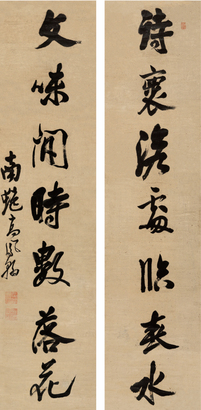 詩裏澹處臨春水
文味閒時數落花
南𨆡高鳳翰